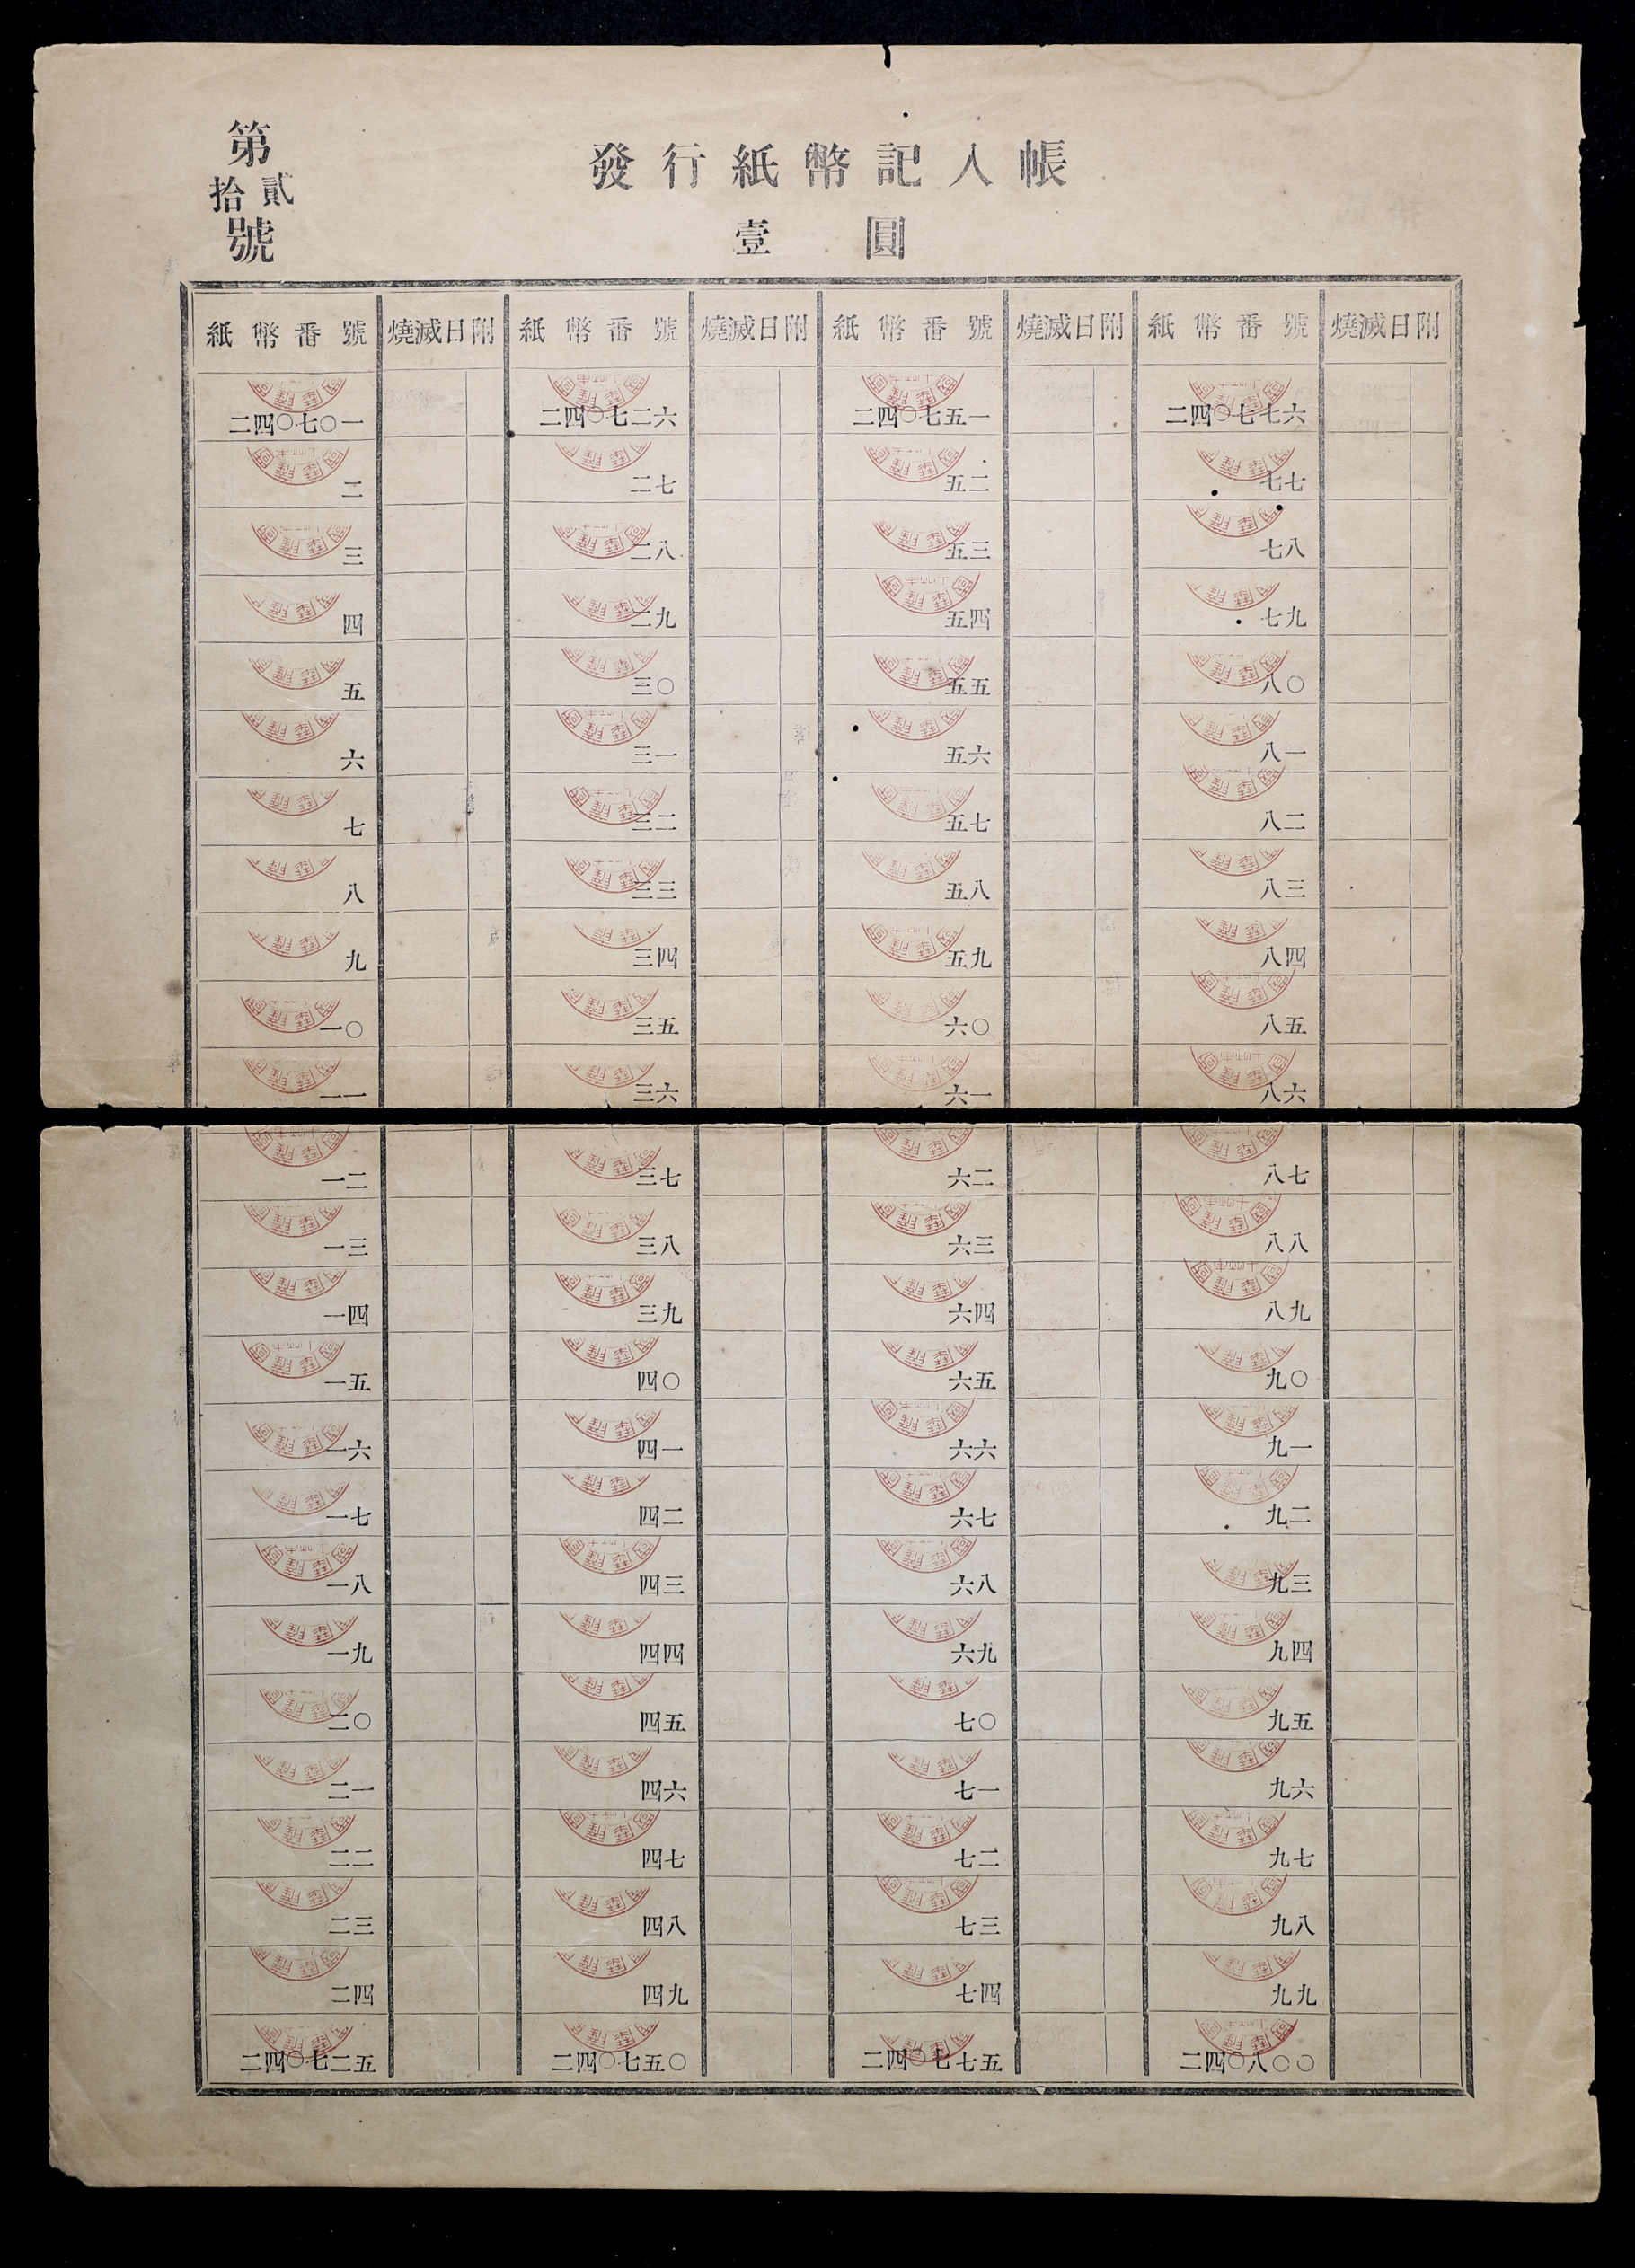 第
貳拾
號
發行紙幣記入帳
壹圓
紙幣番號 燒滅日附 紙幣番號 燒滅日附 紙幣番號 燒滅日附 紙幣番號 燒滅日附
二四〇七〇一 二四〇七二六 二四〇七五一 二四〇七七六
二 二七 五二 七七
三 二八 五三 七八
四 二九 五四 七九
五 三〇 五五 八〇
六 三一 五六 八一
七 三二 五七 八二
八 三三 五八 八三
九 三四 五九 八四
一〇 三五 六〇 八五
一一 三六 六一 八六
一二 三七 六二 八七
一三 三八 六三 八八
一四 三九 六四 八九
一五 四〇 六五 九〇
一六 四一 六六 九一
一七 四二 六七 九二
一八 四三 六八 九三
一九 四四 六九 九四
二〇 四五 七〇 九五
二一 四六 七一 九六
二二 四七 七二 九七
二三 四八 七三 九八
二四 四九 七四 九九
二四〇七二五 二四〇七五〇 二四〇七七五 二四〇八〇〇